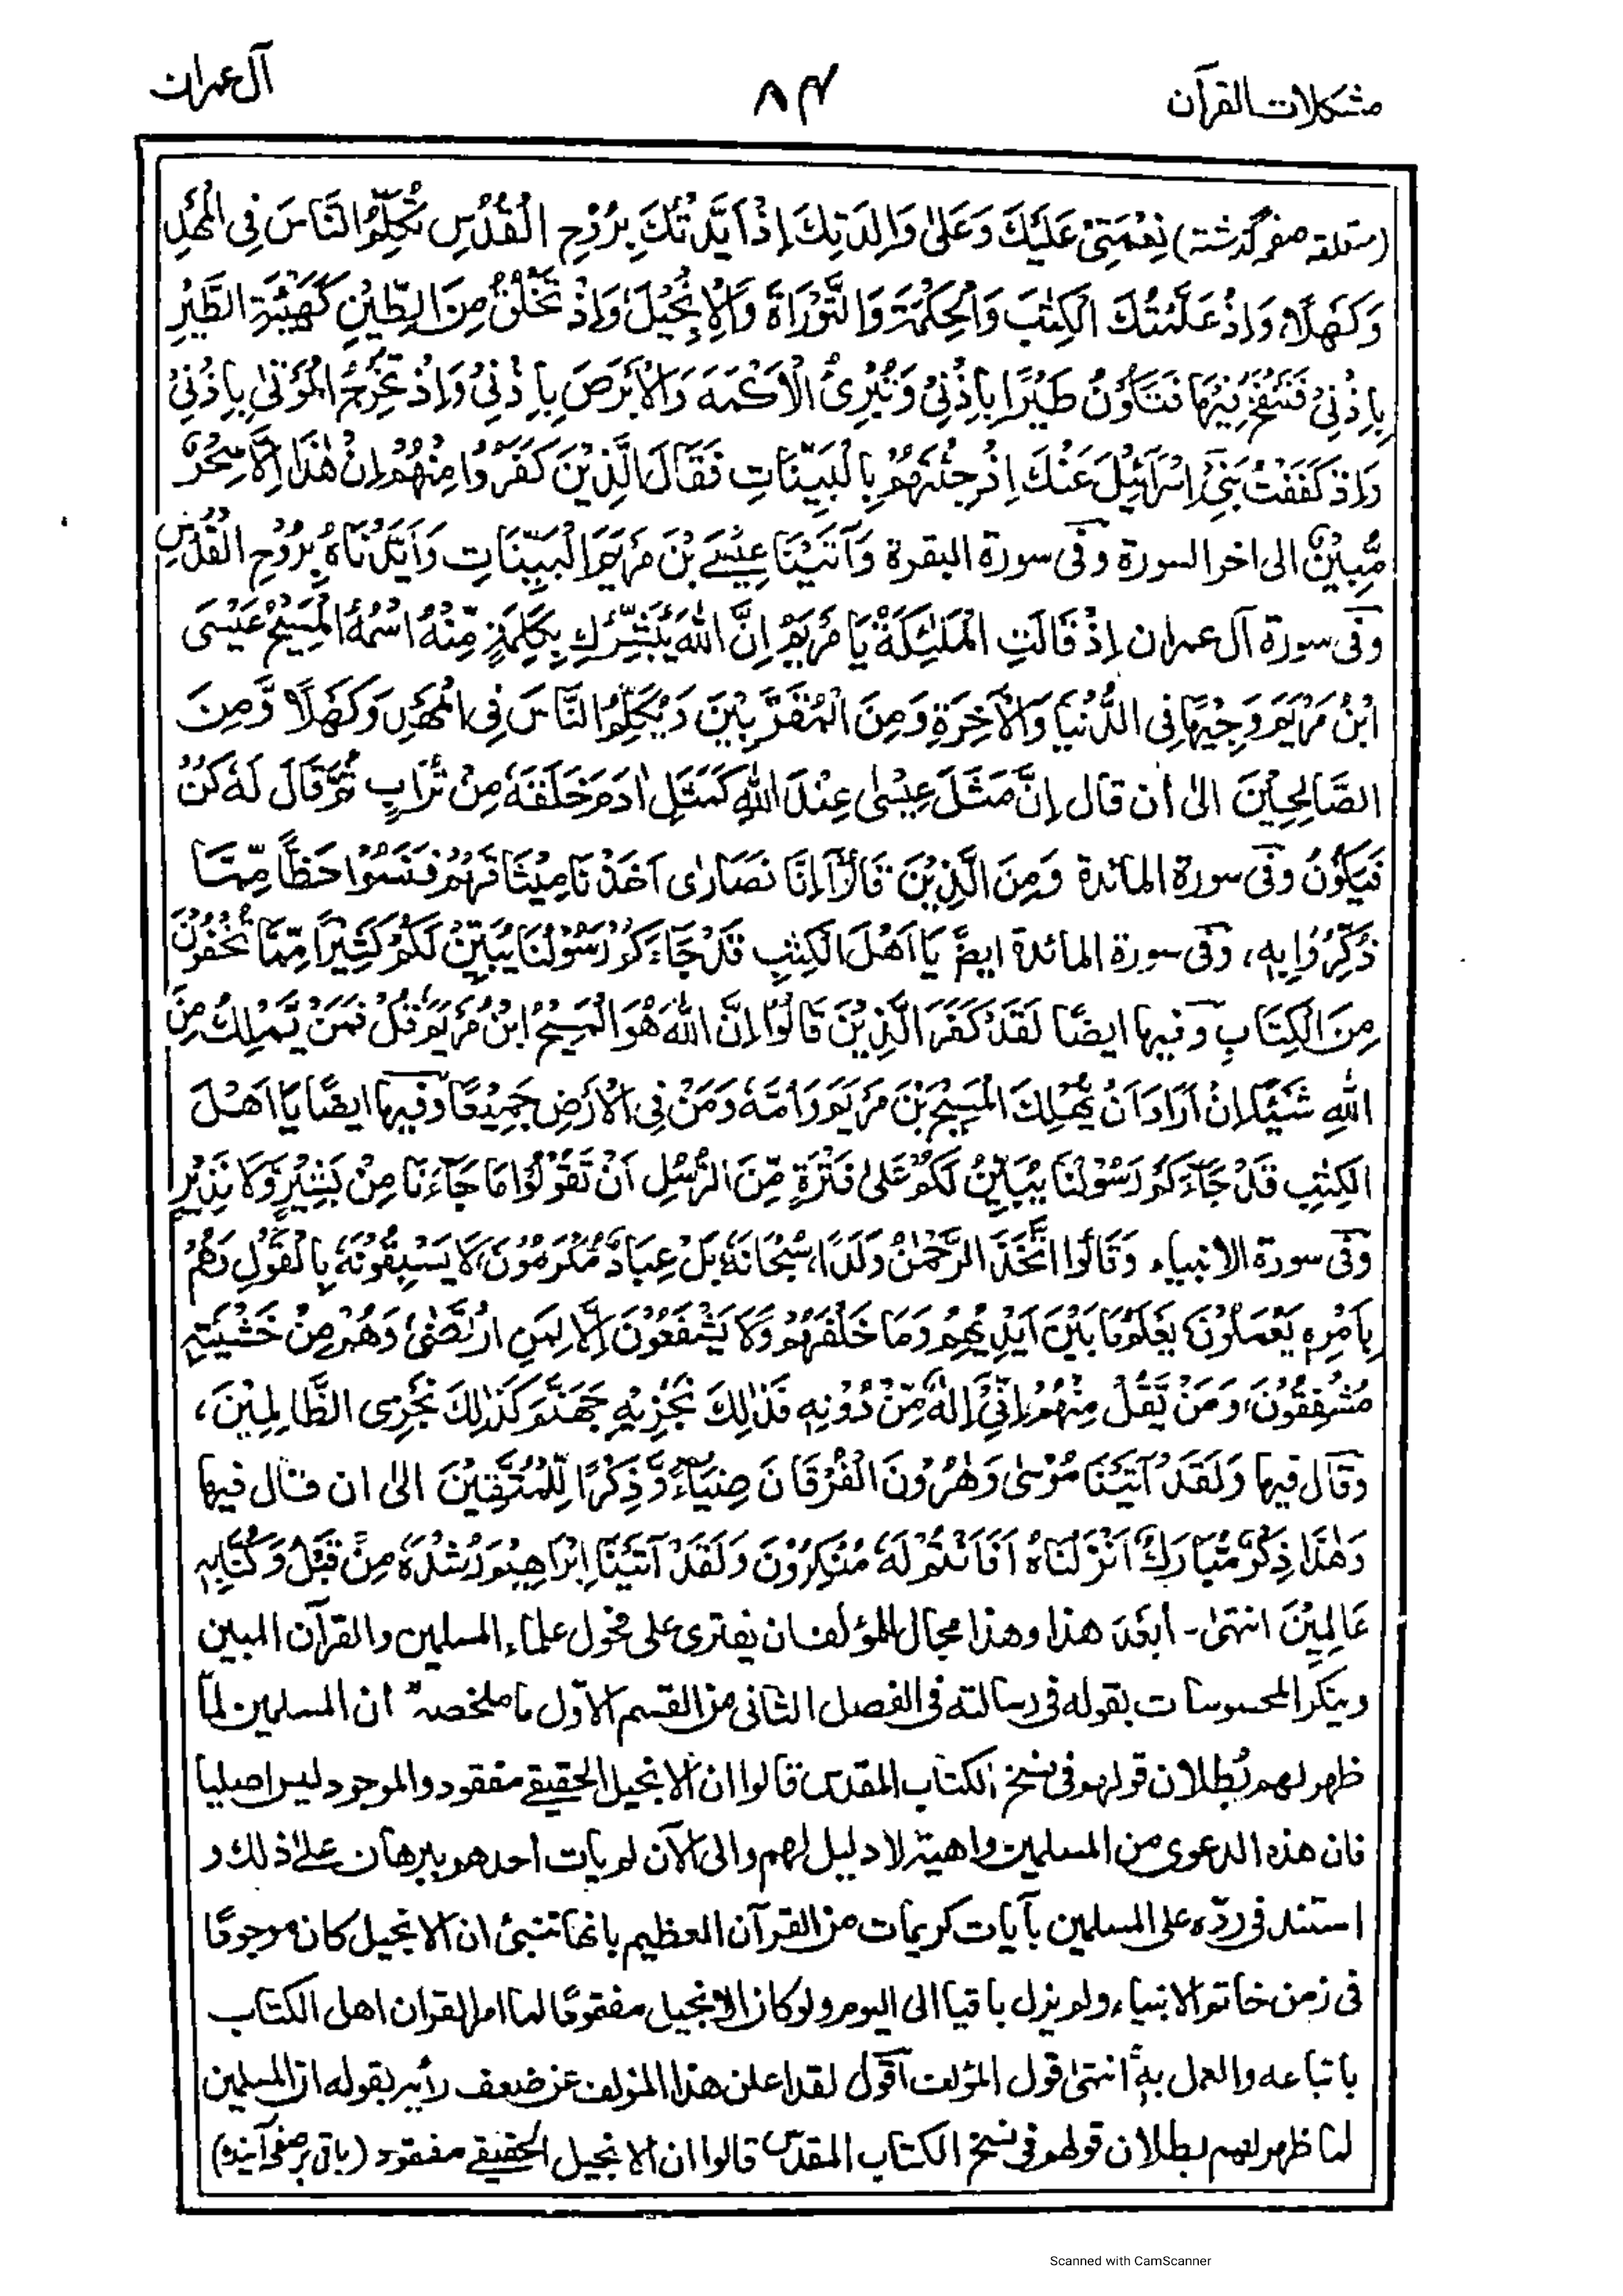 مشكلات القرآن
٨٤
آل عمران
(متعلقہ صفحہ گذشتہ) نِعْمَتِيْ عَلَيْكَ وَعَلىٰ وَالِدَتِكَ اِذْ اَيَّدْتُّكَ بِرُوْحِ الْقُدُسِ تُكَلِّمُ النَّاسَ فِي الْمَهْدِ
وَكَهْلًا، وَاِذْ عَلَّمْتُكَ الْكِتٰبَ وَالْحِكْمَةَ وَالتَّوْرَاةَ وَالْاِنْجِيْلَ وَاِذْ تَخْلُقُ مِنَ الطِّيْنِ كَهَيْئَةِ الطَّيْرِ
بِاِذْنِيْ فَتَنْفُخُ فِيْهَا فَتَكُوْنُ طَيْرًا بِاِذْنِيْ وَتُبْرِئُ الْاَكْمَهَ وَالْاَبْرَصَ بِاِذْنِيْ وَاِذْ تُخْرِجُ الْمَوْتٰى بِاِذْنِيْ
وَاِذْ كَفَفْتُ بَنِيْ اِسْرَآئِيْلَ عَنْكَ اِذْ جِئْتَهُمْ بِالْبَيِّنَاتِ فَقَالَ الَّذِيْنَ كَفَرُوْا مِنْهُمْ اِنْ هٰذَا اِلَّا سِحْرٌ
مُّبِيْنٌ الى اخر السورة وفى سورة البقرة وَآتَيْنَا عِيْسَى بْنَ مَرْيَمَ الْبَيِّنَاتِ وَاَيَّدْنَاهُ بِرُوْحِ الْقُدُسِ
وفى سورة آل عمران اِذْ قَالَتِ الْمَلٰئِكَةُ يَا مَرْيَمُ اِنَّ اللهَ يُبَشِّرُكِ بِكَلِمَةٍ مِّنْهُ اسْمُهُ الْمَسِيْحُ عِيْسَى
ابْنُ مَرْيَمَ وَجِيْهًا فِى الدُّنْيَا وَالْآخِرَةِ وَمِنَ الْمُقَرَّبِيْنَ وَيُكَلِّمُ النَّاسَ فِى الْمَهْدِ وَكَهْلًا وَّمِنَ
الصَّالِحِيْنَ الى أن قال اِنَّ مَثَلَ عِيْسٰى عِنْدَ اللهِ كَمَثَلِ اٰدَمَ خَلَقَهٗ مِنْ تُرَابٍ ثُمَّ قَالَ لَهٗ كُنْ
فَيَكُوْنُ وفى سورة المائدة وَمِنَ الَّذِيْنَ قَالُوْا اِنَّا نَصَارٰى اَخَذْنَا مِيْثَاقَهُمْ فَنَسُوْا حَظًّا مِّمَّا
ذُكِّرُوْا بِهٖ، وفى سورة المائدة ايضً يَا اَهْلَ الْكِتٰبِ قَدْ جَآءَكُمْ رَسُوْلُنَا يُبَيِّنُ لَكُمْ كَثِيْرًا مِّمَّا تُخْفُوْنَ
مِنَ الْكِتَابِ وفيها ايضًا لَقَدْ كَفَرَ الَّذِيْنَ قَالُوْا اِنَّ اللهَ هُوَ الْمَسِيْحُ ابْنُ مَرْيَمَ قُلْ فَمَنْ يَّمْلِكُ مِنَ
اللهِ شَيْئًا اِنْ اَرَادَ اَنْ يُّهْلِكَ الْمَسِيْحَ بْنَ مَرْيَمَ وَاُمَّهٗ وَمَنْ فِى الْاَرْضِ جَمِيْعًا وفيها ايضًا يَا اَهْلَ
الْكِتٰبِ قَدْ جَآءَكُمْ رَسُوْلُنَا يُبَيِّنُ لَكُمْ عَلىٰ فَتْرَةٍ مِّنَ الرُّسُلِ اَنْ تَقُوْلُوْا مَا جَآءَنَا مِنْ بَشِيْرٍ وَّلَا نَذِيْرٍ
وفى سورة الانبياء وَقَالُوا اتَّخَذَ الرَّحْمٰنُ وَلَدًا، سُبْحَانَهٗ بَلْ عِبَادٌ مُّكْرَمُوْنَ لَا يَسْبِقُوْنَهٗ بِالْقَوْلِ وَهُمْ
بِاَمْرِهٖ يَعْمَلُوْنَ يَعْلَمُ مَا بَيْنَ اَيْدِيْهِمْ وَمَا خَلْفَهُمْ وَلَا يَشْفَعُوْنَ اِلَّا لِمَنِ ارْتَضٰى وَهُمْ مِنْ خَشْيَتِهٖ
مُشْفِقُوْنَ، وَمَنْ يَّقُلْ مِنْهُمْ اِنِّيْ اِلٰهٌ مِّنْ دُوْنِهٖ فَذٰلِكَ نَجْزِيْهِ جَهَنَّمَ كَذٰلِكَ نَجْزِى الظَّالِمِيْنَ،
وقال فيها وَلَقَدْ آتَيْنَا مُوْسٰى وَهٰرُوْنَ الْفُرْقَانَ ضِيَآءً وَّذِكْرًا لِّلْمُتَّقِيْنَ الى ان قال فيها
وَهٰذَا ذِكْرٌ مُّبَارَكٌ اَنْزَلْنَاهُ اَفَاَنْتُمْ لَهٗ مُنْكِرُوْنَ وَلَقَدْ آتَيْنَا اِبْرَاهِيْمَ رُشْدَهٗ مِنْ قَبْلُ وَكُنَّا بِهٖ
عَالِمِيْنَ انتهىٰ - أبَعْدَ هذا وهذا مجال للمؤلف ان يفترى على فحول علماء المسلمين والقرآن المبين
وينكر المحسوسات بقوله فى رسالته فى الفصل الثانى من القسم الاوّل ما ملخصه" ان المسلمين لمّا
ظهر لهم بُطلان قولهم فى نسخ الكتاب المقدس قالوا ان الانجيل الحقيقي مفقود والموجود ليس اصليا
فان هذه الدعوى من المسلمين واهية لا دليل لهم والى الآن لم يات احدهم ببرهان على ذلك و
استند فى ردّه على المسلمين بآيات كريمات من القرآن العظيم بانها تنبئ ان الانجيل كان موجودًا
فى زمن خاتم الانبياء ولم يزل باقيا الى اليوم ولو كان الانجيل مفقودًا لما امر القران اهل الكتاب
باتباعه والعمل به" انتهىٰ قول المؤلف اقول لقد اعلن هذا المؤلف عن ضعف رأيه بقوله ان المسلمين
لما ظهر لهم بطلان قولهم فى نسخ الكتاب المقدس قالوا ان الانجيل الحقيقي مفقود (باقى بر صفحہ آئندہ)
Scanned with CamScanner